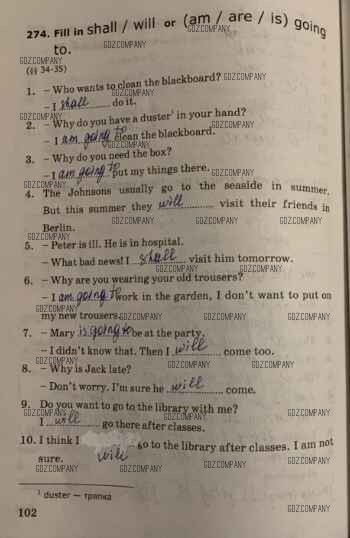 274. Fill in shall / will or (am / are / is) going
to.
(§§ 34-35)
1. – Who wants to clean the blackboard?
– I shall do it.
2. – Why do you have a duster¹ in your hand?
– I am going to clean the blackboard.
3. – Why do you need the box?
– I am going to put my things there.
4. The Johnsons usually go to the seaside in summer.
But this summer they will visit their friends in
Berlin.
5. – Peter is ill. He is in hospital.
– What bad news! I shall visit him tomorrow.
6. – Why are you wearing your old trousers?
– I am going to work in the garden, I don't want to put on
my new trousers.
7. – Mary is going to be at the party.
– I didn't know that. Then I will come too.
8. – Why is Jack late?
– Don't worry. I'm sure he will come.
9. Do you want to go to the library with me?
I will go there after classes.
10. I think I will go to the library after classes. I am not
sure.
¹ duster — тряпка
102
GDZ.COMPANY